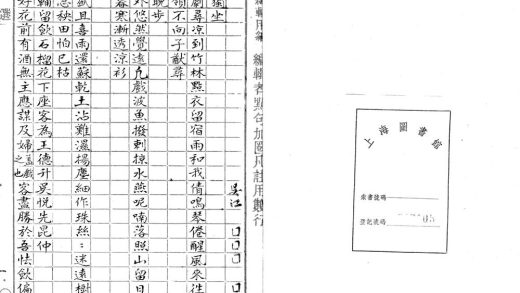 上海圖書館
索書號碼
登記號碼
編輯者點句加圈凡註用雙行
吴江
獨坐
尋涼到竹林點衣留宿雨和我倩鳴琴倦醒風來往
領不向子猷尋
晚步
外悠然覺遠凫戲波魚撥剌掠水燕呢喃落照山留
春寒漸透涼衫
且喜雨還蘇乾土沾難濕楊塵細作珠絲：迷遠樹
秧田怕已枯
輔留飲石榴花下座客為王德升吳悅先昆仲
好花前有酒無主應謀及婦蓋戲之也客盡勝於吾怯飲偏
選